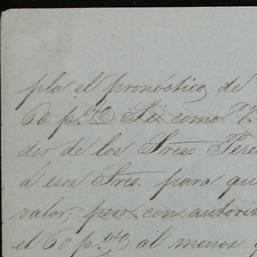 pla el pronóstico de
60 p.% Si como V.
deo de los Sres. Pere
á esos Sres. para qu
valor, pero con autori
el 60 p.% al menos